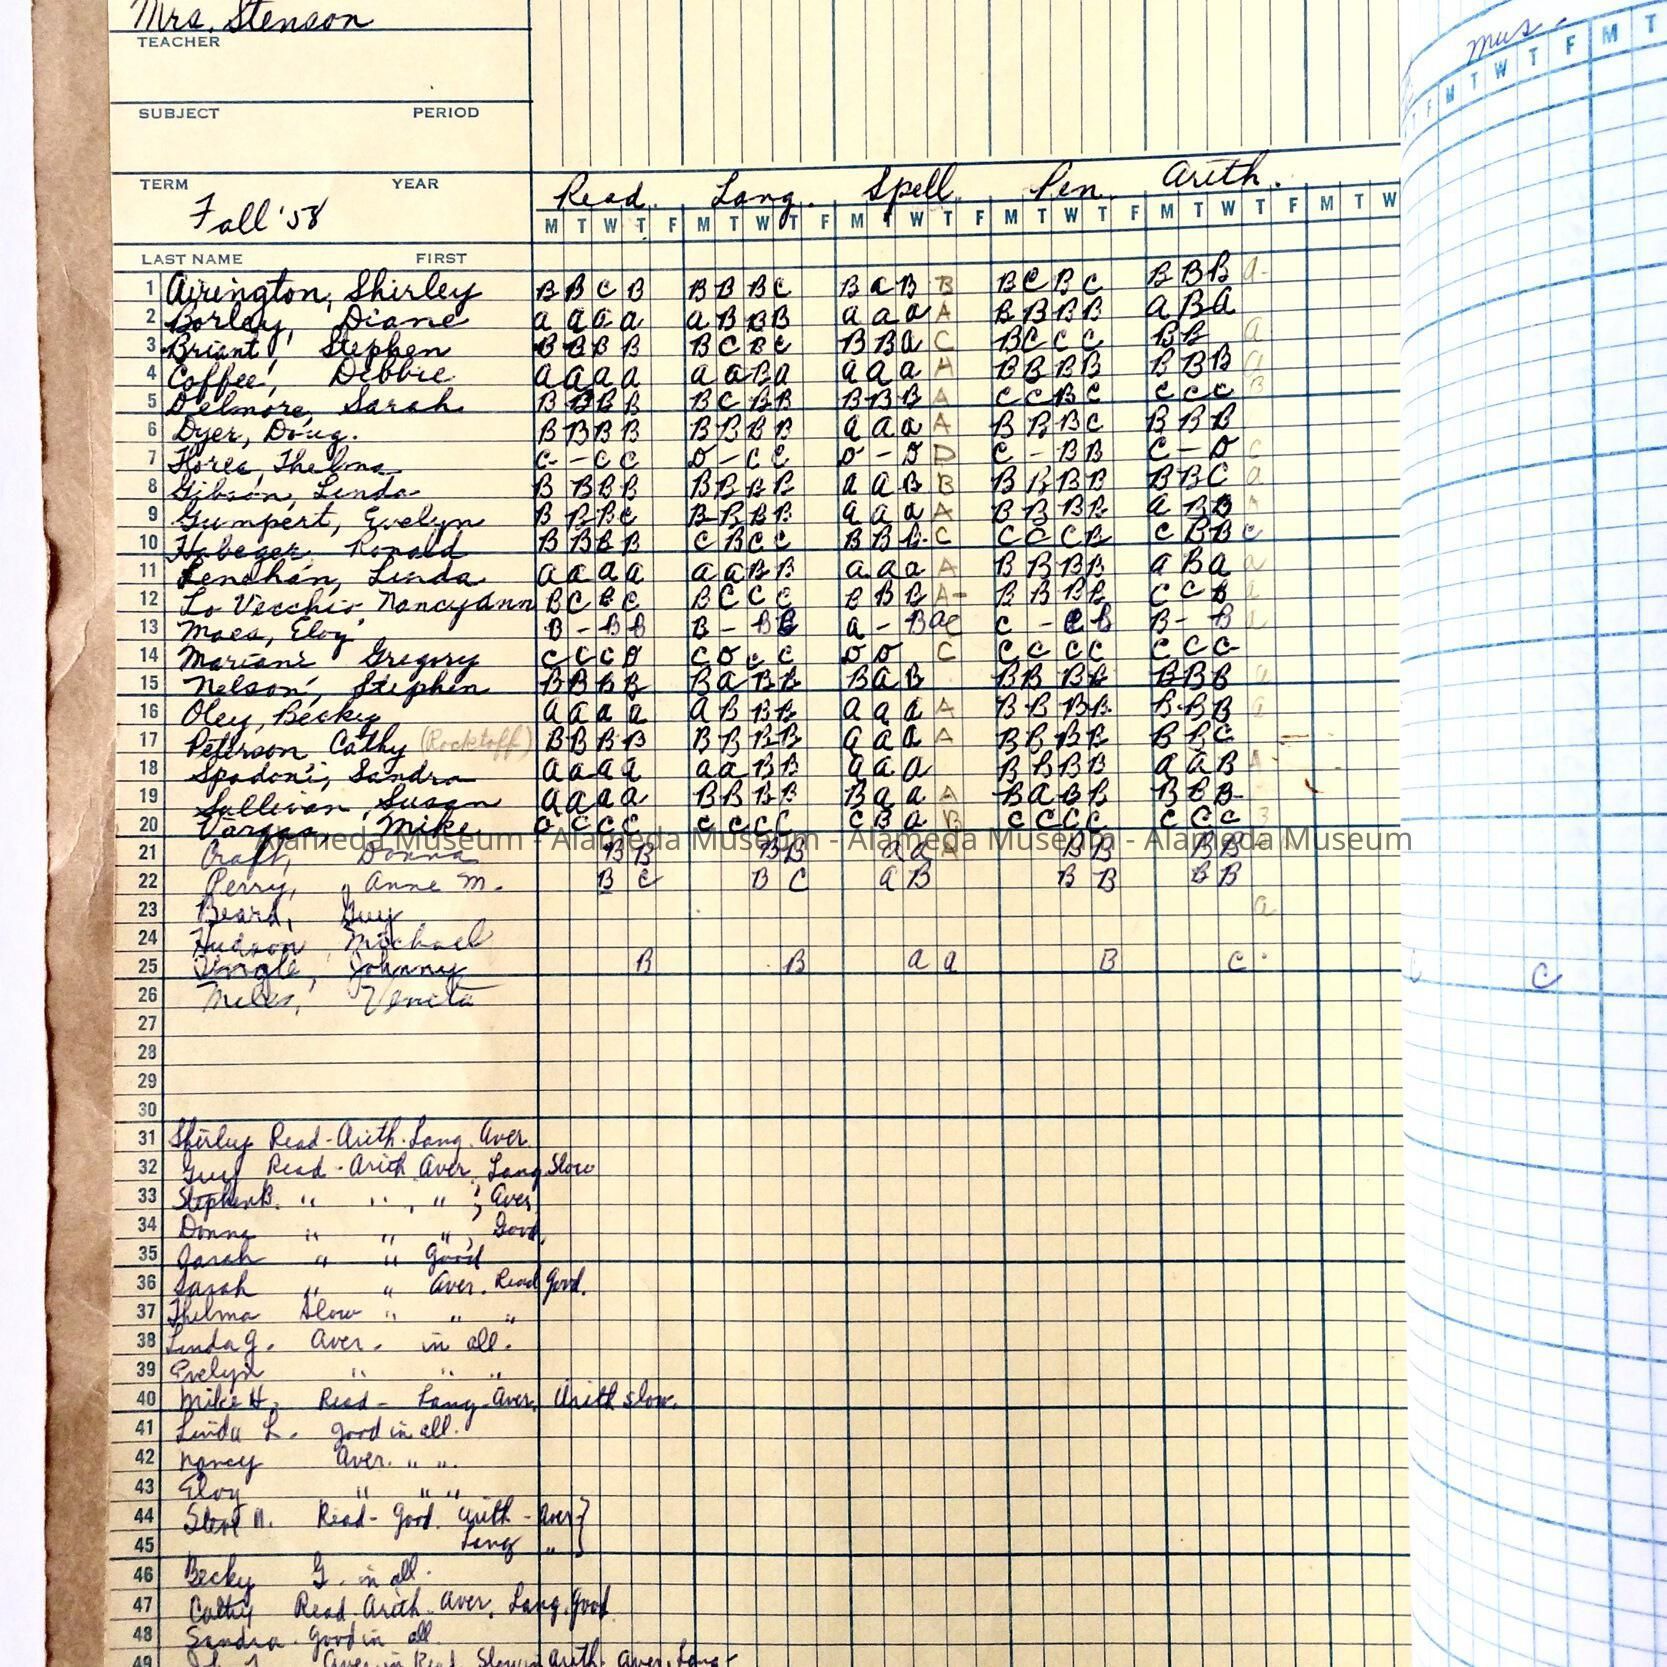 Mrs. Stenson
TEACHER
SUBJECT PERIOD
mus.
F M T W T F M T
TERM YEAR
Fall '58
Read. Lang. Spell. Pen. Arith.
M T W T F M T W T F M T W T F M T W T F M T W T F M T W
LAST NAME FIRST
1 Airington, Shirley B B C B B B B C B a B B B C B C B B B a-
2 Borley, Diane a a a a a B B B a a a A B B B B a B a
3 Briant, Stephen B B B B B C B C B B a C B C C C B B a
4 Coffee, Debbie a a a a a a B a a a a A B B B B B B B a
5 Delmore, Sarah B B B B B C B B B B B A C C B C C C C B
6 Dyer, Doug. B B B B B B B B a a a A B B B C B B B
7 Flores, Thelma C - C C D - C C D - D D C - B B C - D C
8 Gibson, Linda B B B B B B B B a a B B B B B B B B C a
9 Gumpert, Evelyn B B B C B B B B a a a A B B B B a B B A
10 Habeger, Ronald B B B B C B C C B B B C C C C B C B B C
11 Lenahan, Linda a a a a a a B B a a a A B B B B a B a a
12 Lo Vecchio NancyAnn B C B C B C C C B B B A- B B B B C C B a
13 Maes, Eloy B - B B B - B B a - B a C C - C B B - B a
14 Mariani Gregory C C C D C D C C D D C C C C C C C C
15 Nelson, Stephen B B B B B a B B B a B B B B B B B B a
16 Oley, Becky a a a a a B B B a a a A B B B B B B B a
17 Peterson Cathy (Rocktoff) B B B B B B B B a a a A B B B B B B C
18 Spadoni, Sandra a a a a a a B B a a a B B B B a a B A
19 Sullivan, Susan a a a a B B B B B a a A B a B B B B B
20 Vargas, Mike D C C C C C C C C B a B C C C C C C C B
Alameda Museum - Alameda Museum - Alameda Museum - Alameda Museum
21 Craft, Donna B B B B a a A B B B B
22 Perry, Anne M. B C B C a B B B B B
23 Beard, Guy a
24 Hudson Michael
25 Pringle, Johnny B B a a B C C
26 Miles, Venita
27
28
29
30
31 Shirley Read-Arith-Lang. Aver.
32 Guy Read - Arith Aver, Lang Slow
33 Stephen B. " " " ; Aver.
34 Donna " " " , Good.
35 Sarah " " Good
36 Sarah " " Aver. Read Good.
37 Thelma Slow " " "
38 Linda G. Aver. in all.
39 Evelyn " " "
40 Mike H. Read - Lang-Aver. Arith slow.
41 Linda L. good in all.
42 Nancy Aver. " ".
43 Eloy " " "
44 Steve N. Read - Good. Arith - Aver }
45 Lang "
46 Becky G. in all.
47 Cathy Read. Arith. Aver. Lang. Good
48 Sandra. Good in all
49 Aver in Read. Slow in Arith. Aver. Lang-